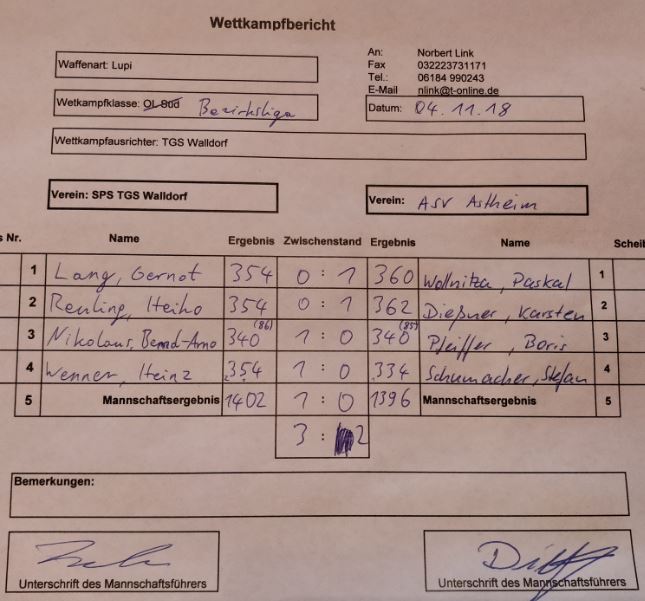 Wettkampfbericht
Waffenart: Lupi
An: Norbert Link
Fax 032223731171
Tel.: 06184 990243
E-Mail nlink@t-online.de
Wetkampfklasse: OL Süd Bezirksliga
Datum: 04.11.18
Wettkampfausrichter: TGS Walldorf
Verein: SPS TGS Walldorf
Verein: ASV Astheim
s Nr. Name Ergebnis Zwischenstand Ergebnis Name Scheib
1 Lang, Gernot 354 0 : 1 360 Wollnitza, Paskal 1
2 Reuling, Heiko 354 0 : 1 362 Dießner, Karsten 2
3 Nikolaus, Bernd-Arno 340 (86) 1 : 0 340 (85) Pfeiffer, Boris 3
4 Wenner, Heinz 354 1 : 0 334 Schumacher, Stefan 4
5 Mannschaftsergebnis 1402 1 : 0 1396 Mannschaftsergebnis 5
3 : 2
Bemerkungen:
Unterschrift des Mannschaftsführers
Unterschrift des Mannschaftsführers